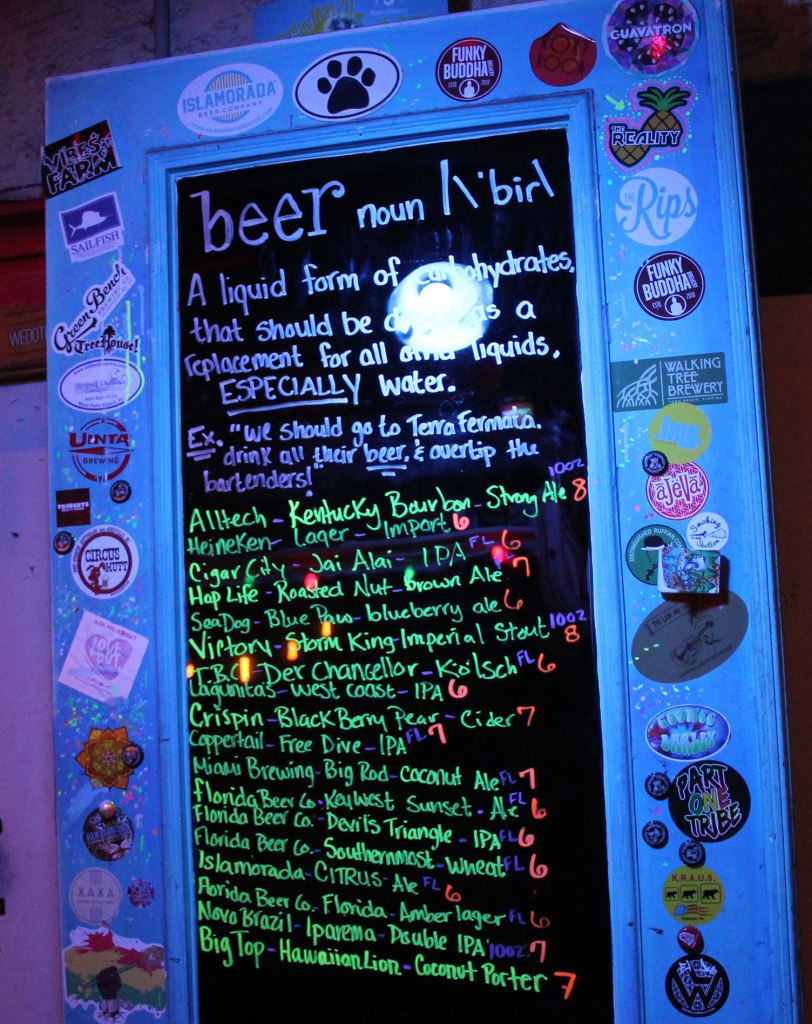 ISLAMORADA
BEER COMPANY
FUNKY
BUDDHA
GUAVATRON
VIBES
FARM
THE
REALITY
SAILFISH
THE
Rips
Green Bench
TreeHouse!
FUNKY
BUDDHA
WALKING
TREE
BREWERY
UINTA
BREWING
ajella
CIRCUS
MUTT
DISTINGUISHED RUFFIAN.COM
Smoking
ASK ME ABOUT
PART
ONE
TRIBE
XAXA
K.R.A.U.S.
beer noun /\'bir\
A liquid form of carbohydrates,
that should be as a
replacement for all other liquids,
ESPECIALLY water.
Ex. "we should go to Terra Fermata.
drink all their beer, & overtip the
bartenders!"
Alltech - Kentucky Bourbon - Strong Ale 10oz 8
Heineken - Lager - Import 6
Cigar City - Jai Alai - IPA FL 6
Hop Life - Roasted Nut - Brown Ale 7
SeaDog - Blue Paw - blueberry ale 6
Victory - Storm King - Imperial Stout 10oz 8
T.B.C. Der Chancellor - Kölsch FL 6
Lagunitas - West Coast - IPA 6
Crispin - BlackBerry Pear - Cider 7
Coppertail - Free Dive - IPA FL 7
Miami Brewing - Big Rod - coconut Ale FL 7
Florida Beer Co. Key West Sunset - Ale FL 6
Florida Beer Co. Devil's Triangle - IPA FL 6
Florida Beer Co. Southernmost - Wheat FL 6
Islamorada - CITRUS - Ale FL 6
Florida Beer Co. Florida - Amber lager FL 6
Novo Brazil - Iparema - Double IPA 10oz 7
Big Top - Hawaiian Lion - Coconut Porter 7